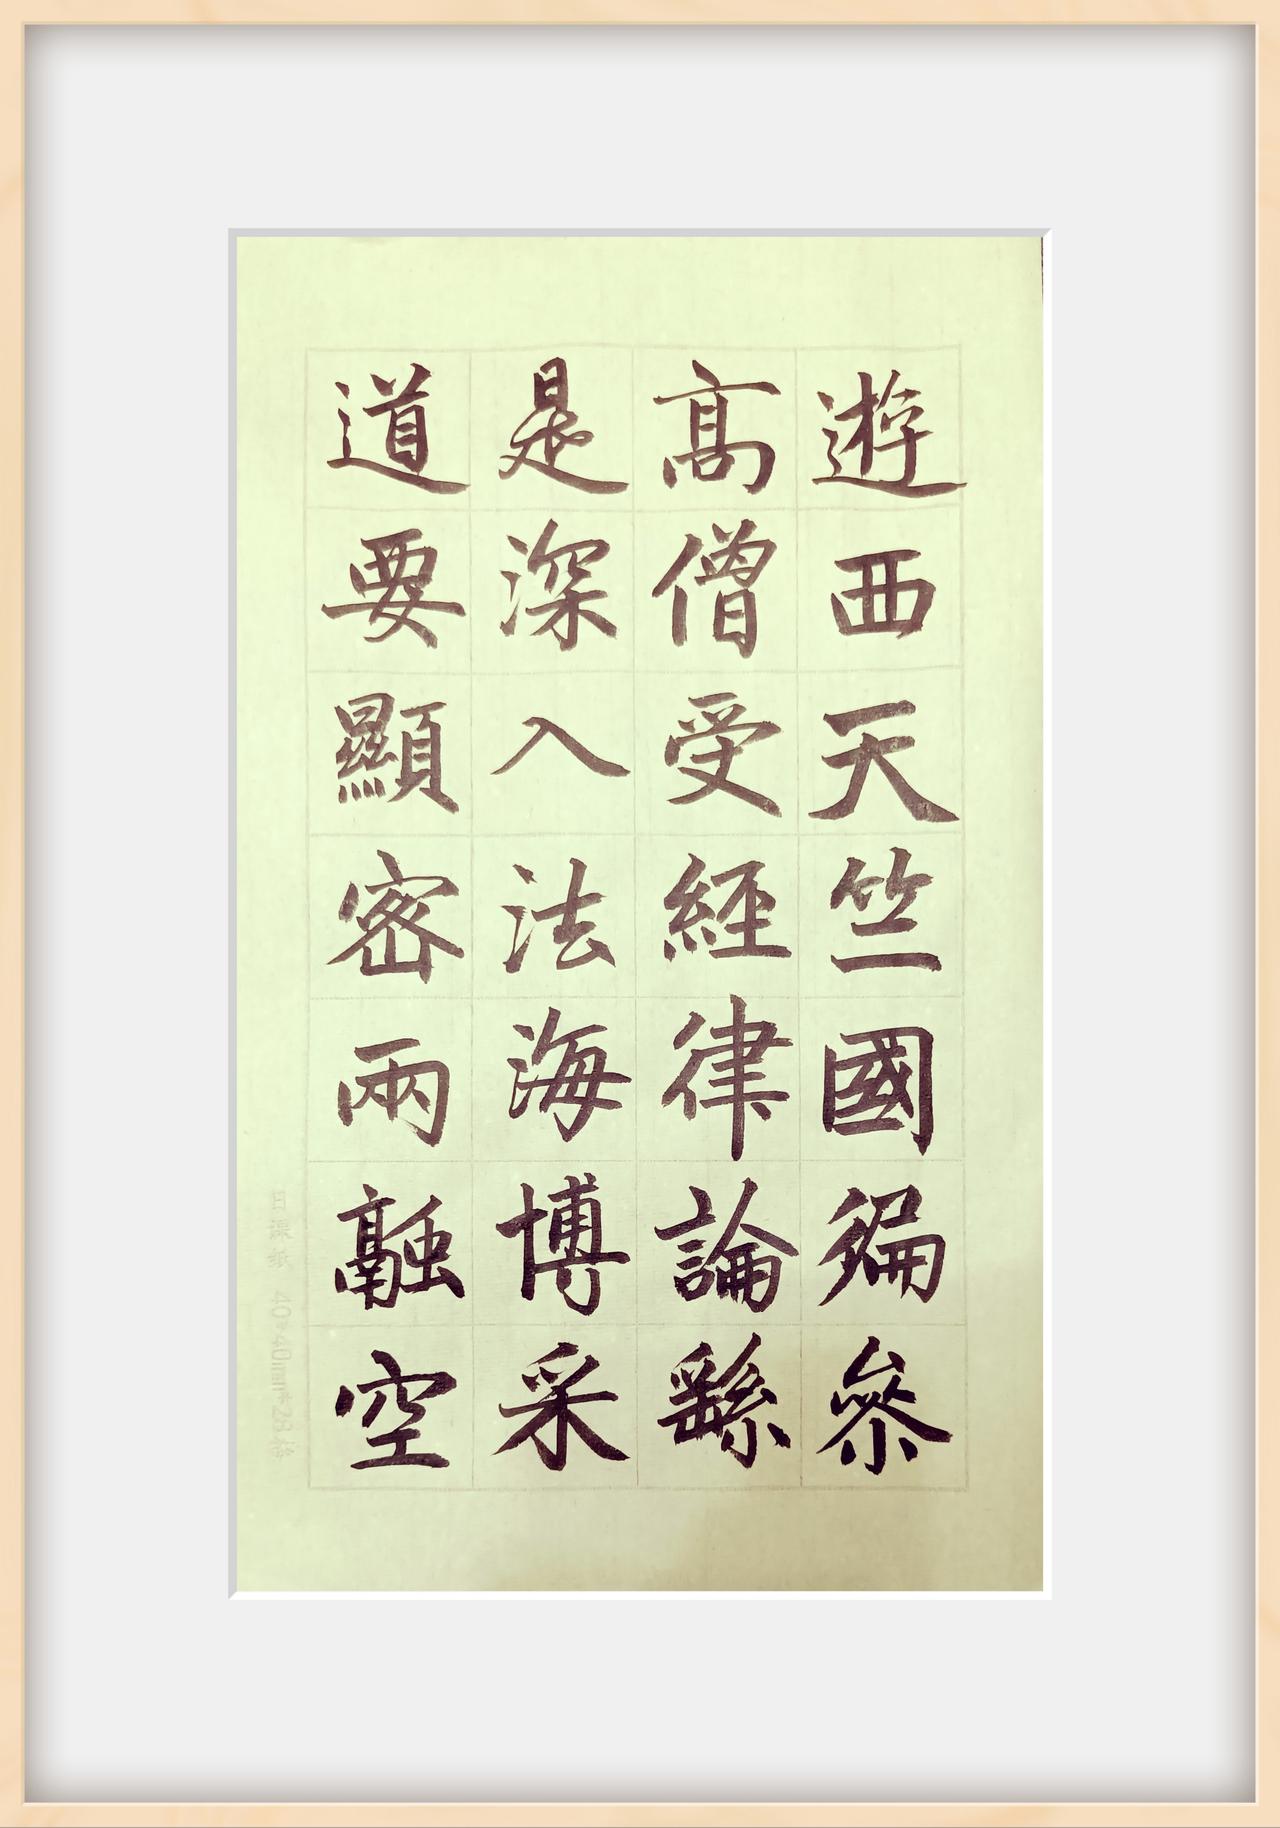 遊西天竺國徧參
高僧受經律論繇
是深入法海博采
道要顯密兩融空
日課紙 40*40mm*28格